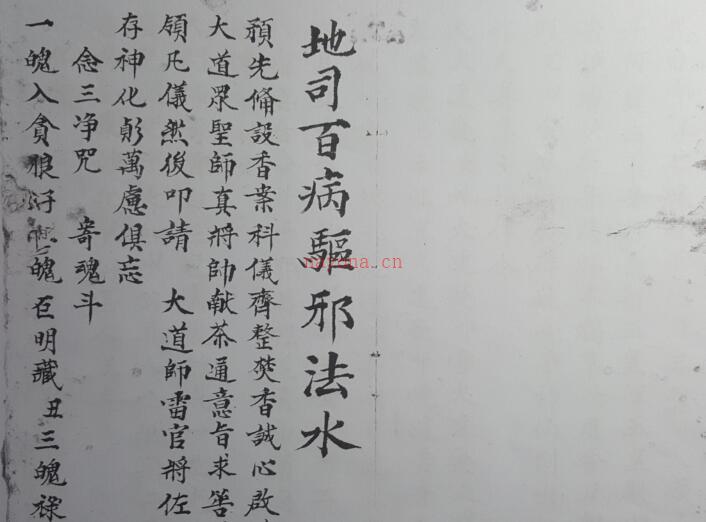 地司百病驅邪法水
預先俻設香案科儀齊整焚香誠心啟
大道眾聖師真將帥献茶通意旨求善
領凡儀然後叩請 大道師雷官將佐
存神化㣧萬慮俱忘
念三净咒 寄魂斗
一魄入貪狼 魄巨明藏丑三魄禄
nazona.cn